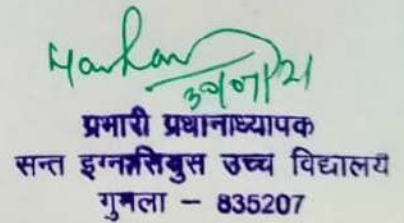 30/07/21
प्रभारी प्रधानाध्यापक
सन्त इग्नासियुस उच्च विद्यालय
गुमला - 835207